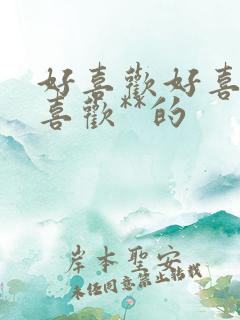 好喜歡好喜
喜歡**的
岸本聖安
未經同意禁止轉載